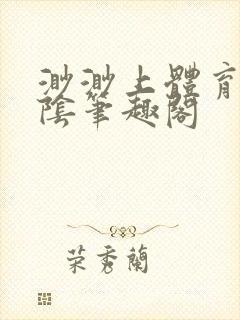 渺渺上體育
陰筆趣閣
荣秀蘭